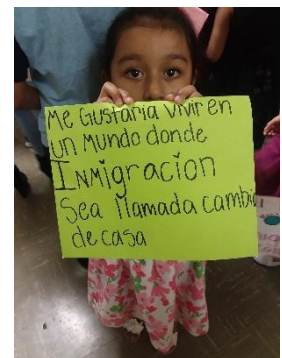 Me Gustaria Vivir en
un Mundo donde
INMigracion
Sea llamada cambio
de casa